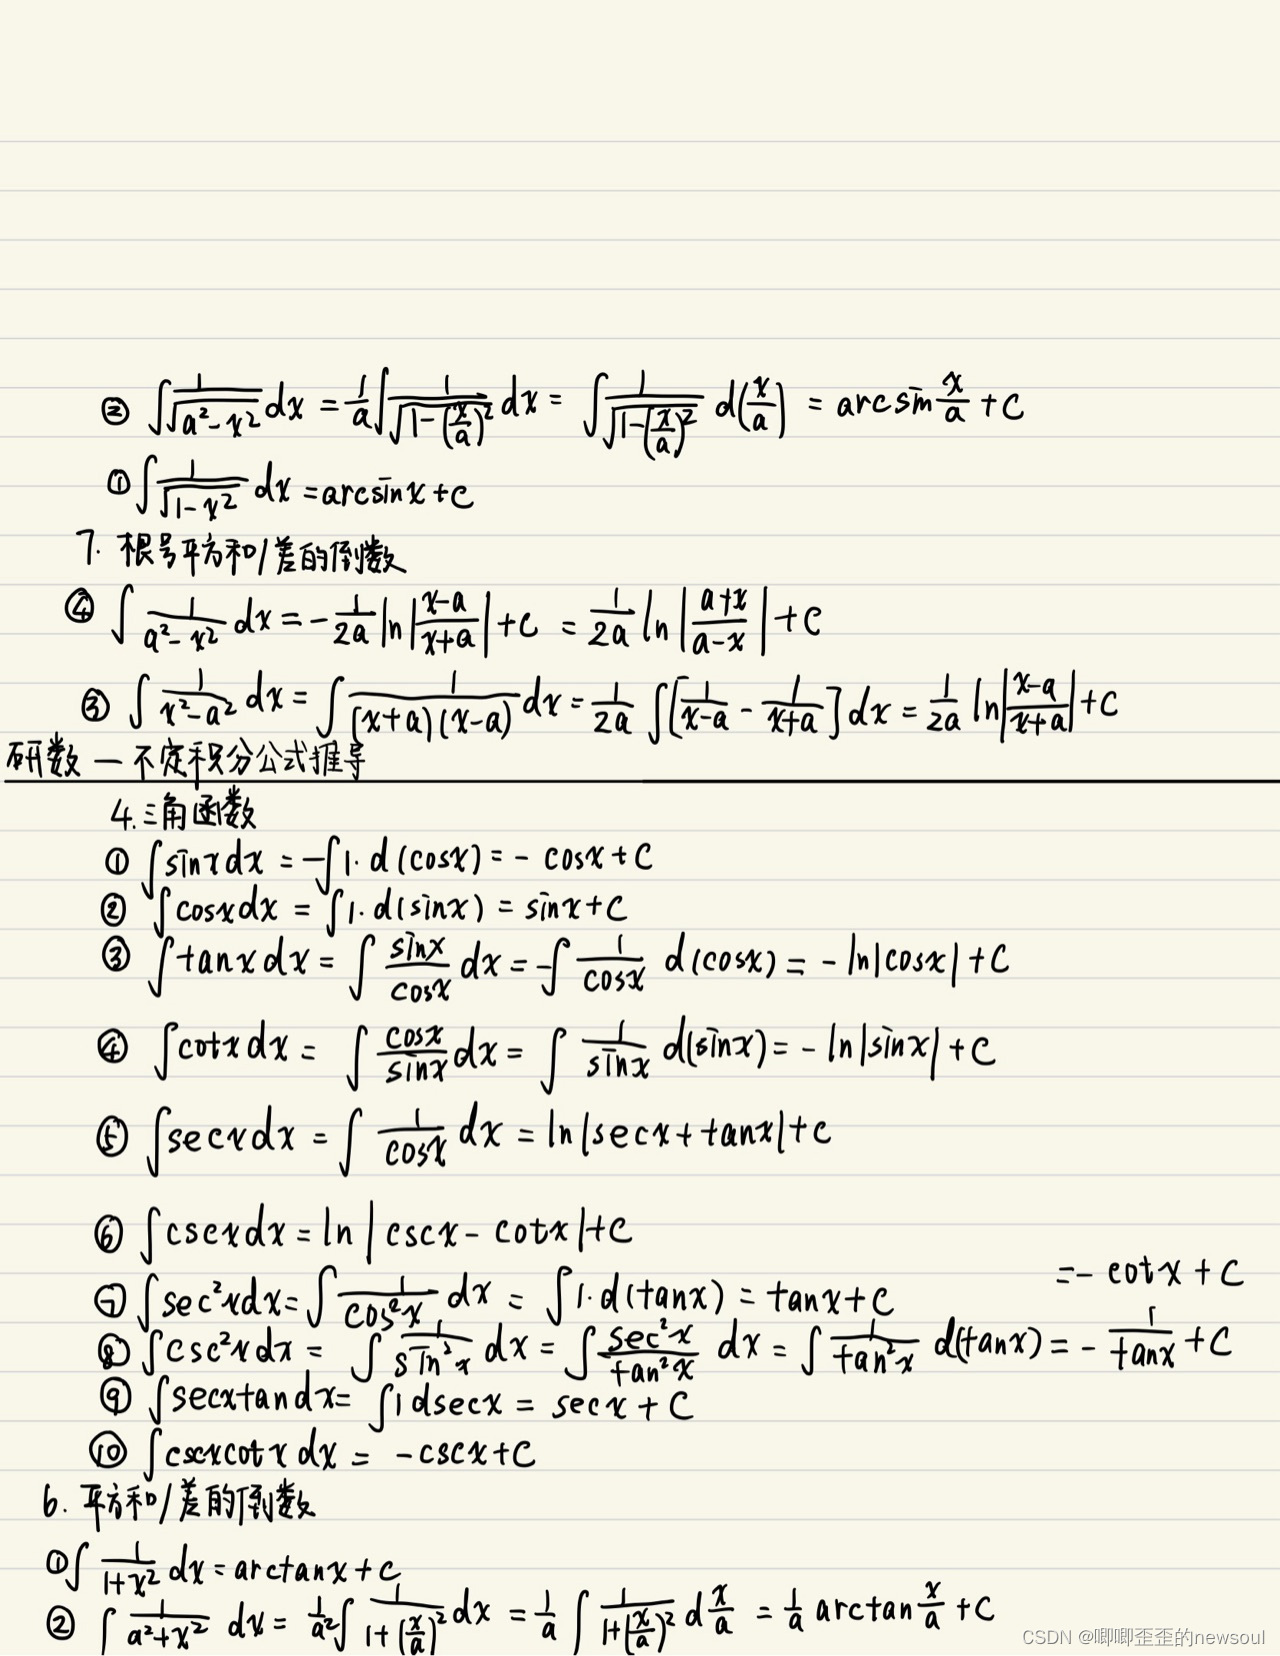 ② ∫1/√(a²-x²) dx = 1/a ∫1/√(1-(x/a)²) dx = ∫1/√(1-(x/a)²) d(x/a) = arcsin x/a + C
① ∫1/√(1-x²) dx = arcsinx+C
7. 根号平方和/差的倒数
④ ∫1/(a²-x²) dx = -1/2a ln|(x-a)/(x+a)| + C = 1/2a ln|(a+x)/(a-x)| + C
③ ∫1/(x²-a²) dx = ∫1/((x+a)(x-a)) dx = 1/2a ∫[1/(x-a) - 1/(x+a)] dx = 1/2a ln|(x-a)/(x+a)| + C
研数一不定积分公式推导
4.三角函数
① ∫sinxdx = -∫1·d(cosx) = -cosx+C
② ∫cosxdx = ∫1·d(sinx) = sinx+C
③ ∫tanxdx = ∫sinx/cosx dx = -∫1/cosx d(cosx) = -ln|cosx|+C
④ ∫cotxdx = ∫cosx/sinx dx = ∫1/sinx d(sinx) = -ln|sinx|+C
⑤ ∫secxdx = ∫1/cosx dx = ln|secx+tanx|+C
⑥ ∫cscxdx = ln|cscx-cotx|+C
=-cotx+C
⑦ ∫sec²xdx = ∫1/cos²x dx = ∫1·d(tanx) = tanx+C
⑧ ∫csc²xdx = ∫1/sin²x dx = ∫sec²x/tan²x dx = ∫1/tan²x d(tanx) = -1/tanx + C
⑨ ∫secxtandx = ∫1dsecx = secx+C
⑩ ∫cscxcotxdx = -cscx+C
6. 平方和/差的倒数
① ∫1/(1+x²) dx = arctanx+C
② ∫1/(a²+x²) dx = 1/a² ∫1/(1+(x/a)²) dx = 1/a ∫1/(1+(x/a)²) d x/a = 1/a arctan x/a + C
CSDN @唧唧歪歪的newsoul